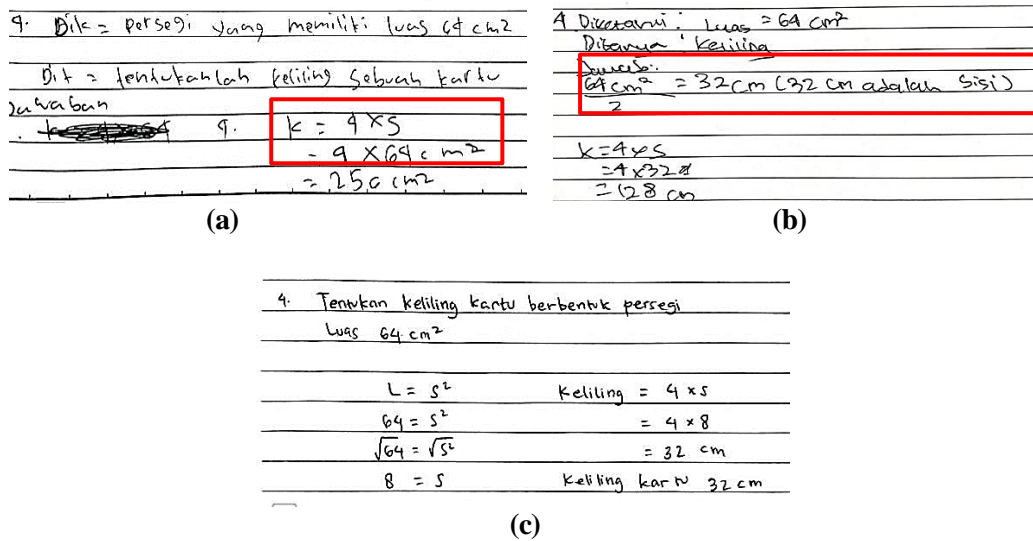 4. Dik = persegi yang memiliki luas 64 cm2
Dit = tentukanlah keliling sebuah kartu
Jawaban
4. k = 4 x s
= 4 x 64 cm2
= 256 cm2
(a)
4 Diketahui: Luas = 64 cm²
Ditanya: Keliling
Jawab:
64 cm² / 2 = 32 cm (32 cm adalah sisi)
K = 4 x s
= 4 x 32
= 128 cm
(b)
4. Tentukan keliling kartu berbentuk persegi
Luas 64 cm²
L = s² Keliling = 4 x s
64 = s² = 4 x 8
√64 = √s² = 32 cm
8 = s Keliling kartu 32 cm
(c)